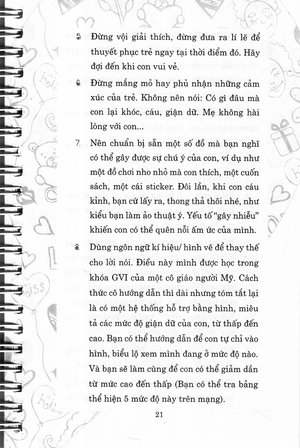 5. Đừng vội giải thích, đừng đưa ra lí lẽ để
thuyết phục trẻ ngay tại thời điểm đó. Hãy
đợi đến khi con vui vẻ.
6. Đừng mắng mỏ hay phủ nhận những cảm
xúc của trẻ. Không nên nói: Có gì đâu mà
con lại khóc, cáu, giận dữ. Mẹ không hài
lòng với con...
7. Nên chuẩn bị sẵn một số đồ mà bạn nghĩ
có thể gây được sự chú ý của con, ví dụ như
một đồ chơi nho nhỏ mà con thích, một cuốn
sách, một cái sticker. Đôi lần, khi con cáu
kỉnh, bạn cứ lấy ra, thong thả thôi nhé, như
kiểu bạn làm ảo thuật ý. Yếu tố "gây nhiễu"
khiến con có thể quên nỗi ấm ức của mình.
8. Dùng ngôn ngữ kí hiệu/ hình vẽ để thay thế
cho lời nói. Điều này mình được học trong
khóa GVI của một cô giáo người Mỹ. Cách
thức cô hướng dẫn thì dài nhưng tóm tắt lại
là có một hệ thống hỗ trợ bằng hình, miêu
tả các mức độ giận dữ của con, từ thấp đến
cao. Bạn có thể hướng dẫn để con tự chỉ vào
hình, biểu lộ xem mình đang ở mức độ nào.
Và bạn sẽ làm cùng để con có thể giảm dần
từ mức cao đến thấp (Bạn có thể tra bảng
thể hiện 5 mức độ này trên mạng).
21